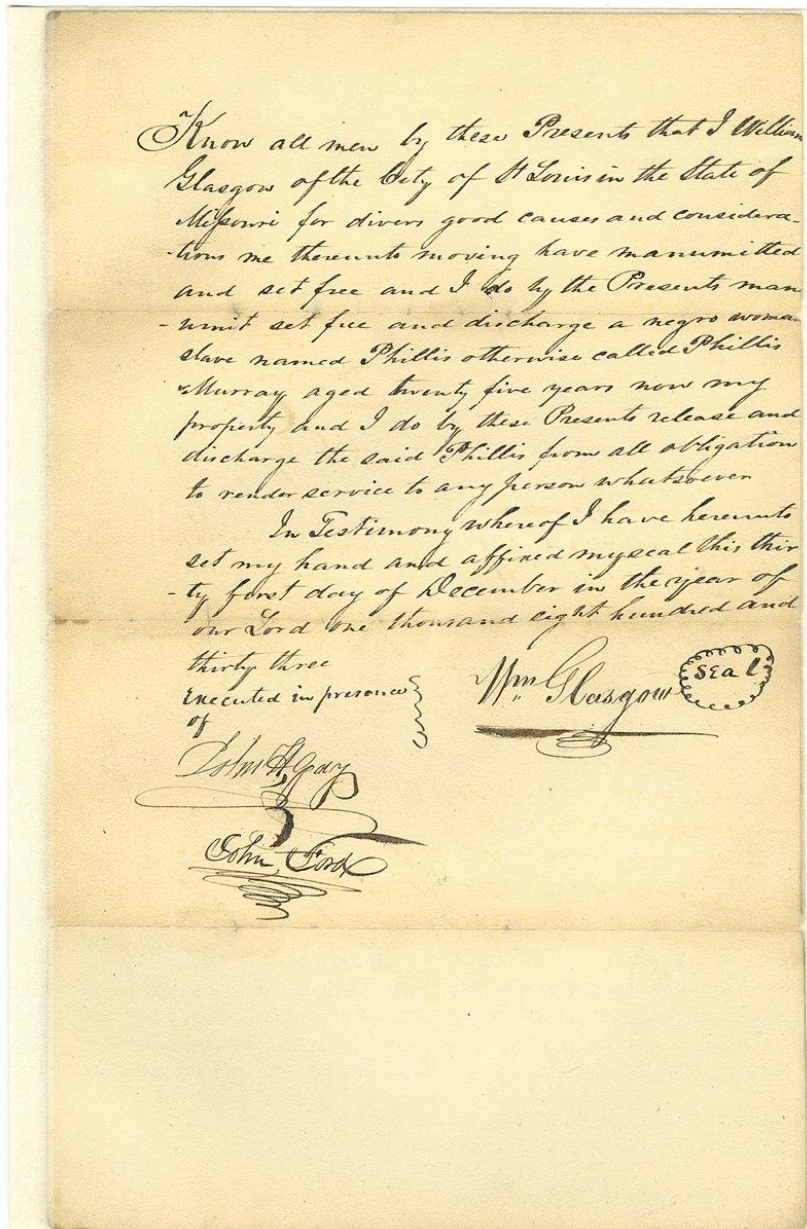 Know all men by these Presents that I William
Glasgow of the City of St Louis in the State of
Missouri for divers good causes and considera-
-tions me thereunto moving have manumitted
and set free and I do by the Presents man
-umit set free and discharge a negro woman
slave named Phillis otherwise called Phillis
Murray aged twenty five years now my
property and I do by these Presents release and
discharge the said Phillis from all obligation
to render service to any person whatsoever
In Testimony whereof I have hereunto
set my hand and affixed my seal this thir
-ty first day of December in the year of
our Lord one thousand eight hundred and
thirty three
Executed in presence
of
Wm Glasgow
Seal
John H Gay
John Ford